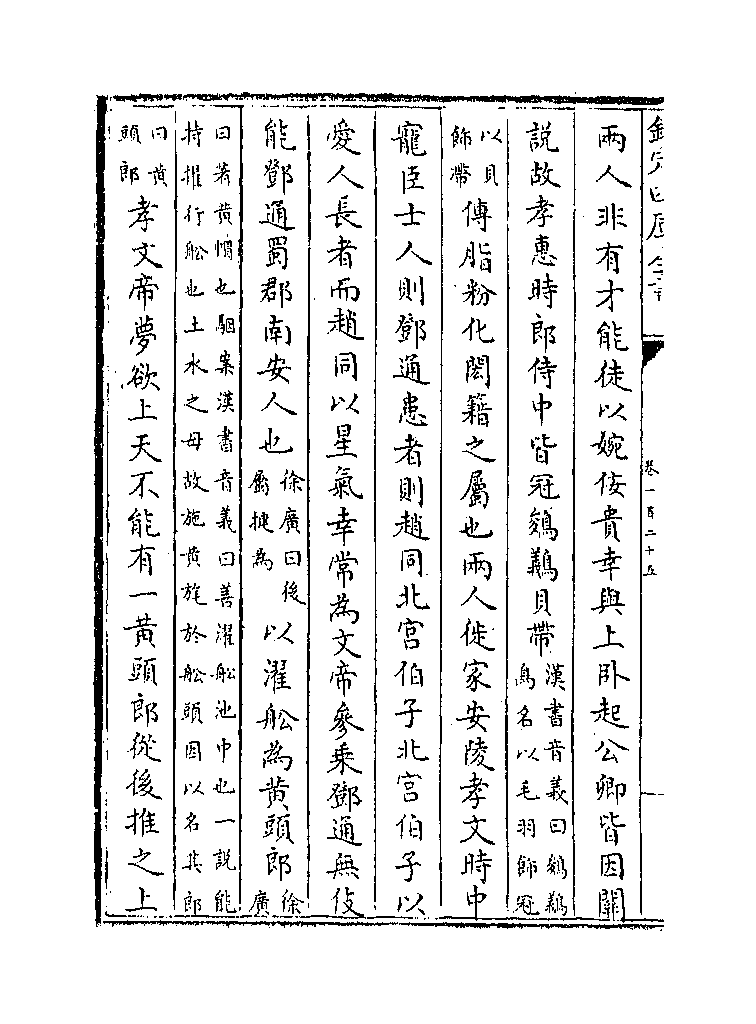 欽定四庫全書
卷一百二十五
兩人非有才能徒以婉佞貴幸與上卧起公卿皆因關
説故孝惠時郎侍中皆冠鵕鸃貝帶漢書音義曰鵕鸃
鳥名以毛羽飾冠
以貝
飾帶傅脂粉化閎籍之屬也兩人徙家安陵孝文時中
寵臣士人則鄧通患者則趙同北宮伯子北宮伯子以
愛人長者而趙同以星氣幸常為文帝參乘鄧通無伎
能鄧通蜀郡南安人也徐廣曰後
屬揵為以濯船為黄頭郎徐
廣
曰著黄㡌也駰案漢書音義曰善濯船池中也一説能
持擢行船也土水之母故施黄旄於船頭因以名其郎
曰黄
頭郎孝文帝夢欲上天不能有一黄頭郎從後推之上